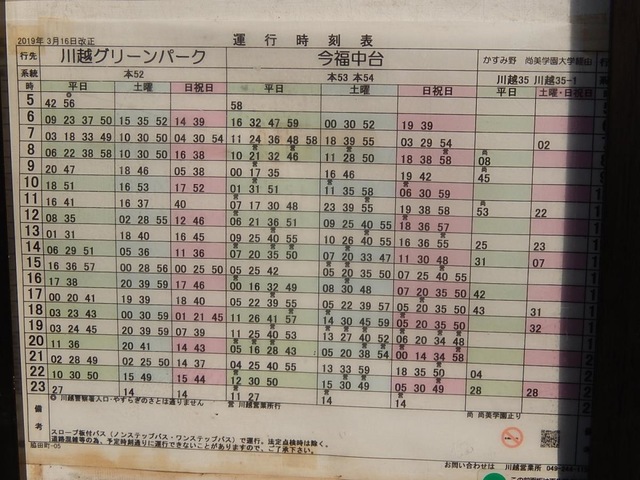 2019年 3月16日改正
運行時刻表
行先 川越グリーンパーク 今福中台 かすみ野 尚美学園大学経由
系統 本52 本53 本54 川越35 川越35-1
時 平日 土曜 日祝日 平日 土曜 日祝日 平日 土曜・日祝日
5 42 56 58
6 09 23 37 50 15 35 52 14 39 16 32 47 59 00 30 52 19 39
7 03 18 33 49 10 30 50 04 30 54 11 24 36 48 58 18 39 55 03 29 54 02
8 06 22 38 58 10 30 50 16 38 10 21 32 46 11 28 50 18 38 58 08
9 20 47 18 46 05 38 00 17 35 16 46 19 42 45
10 18 51 16 53 17 52 01 31 51 11 35 58 06 30 59
11 16 41 16 37 40 07 17 30 48 23 39 55 19 38 58 53 22
12 08 35 02 28 55 12 46 06 21 36 51 09 25 40 55 18 36 57
13 01 31 18 40 16 45 09 25 40 55 10 26 40 55 16 36 55 25 23
14 06 29 51 05 36 11 36 07 20 35 50 07 20 33 47 11 30 48 31 07
15 16 36 57 00 28 56 00 25 50 05 25 42 05 20 35 50 07 25 40 55
16 17 38 20 39 59 17 46 00 16 32 49 08 30 48 07 20 35 50 42
17 00 20 41 19 39 18 40 05 22 39 55 05 22 39 57 05 20 35 50 43 31
18 03 23 43 00 30 59 01 21 45 11 26 41 57 14 30 45 59 05 20 35 50 32
19 03 24 45 20 39 59 07 39 11 25 40 53 13 27 40 52 06 20 34 48
20 11 36 20 41 14 43 05 16 28 43 05 20 38 54 00 14 34 58
21 02 28 49 02 25 50 14 37 22 25 40 55 13 33 59 18 35 50 04
22 10 30 50 15 49 15 44 12 30 50 15 30 49 05 30 49 28 28
23 27 14 14 11 27 14 14
備考
川越警察署入口・やすらぎのさとは通りません 営 川越営業所行 尚 尚美学園止り
スロープ板付バス(ノンステップバス・ワンステップバス)で運行。法定点検時は除く。
道路混雑等の為、予定時刻通りに運行できないことがありますので、ご了承下さい。
脇田町-05
お問い合わせは 川越営業所